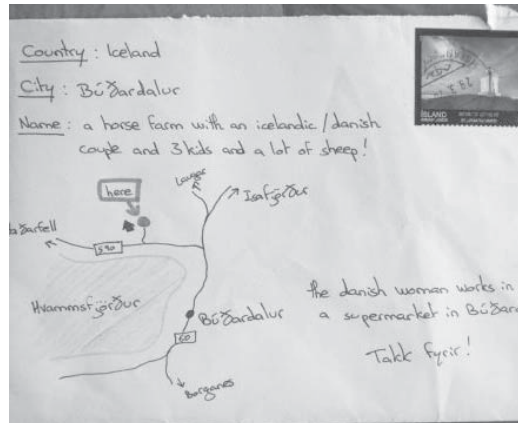 Country : Iceland
City : Búðardalur
Name : a horse farm with an icelandic/danish
couple and 3 kids and a lot of sheep!
ÍSLAND
here
Laugar
Isafjörður
590
Hvammsfjörður
Búðardalur
60
Borganes
the danish woman works in
a supermarket in
Takk fyrir!